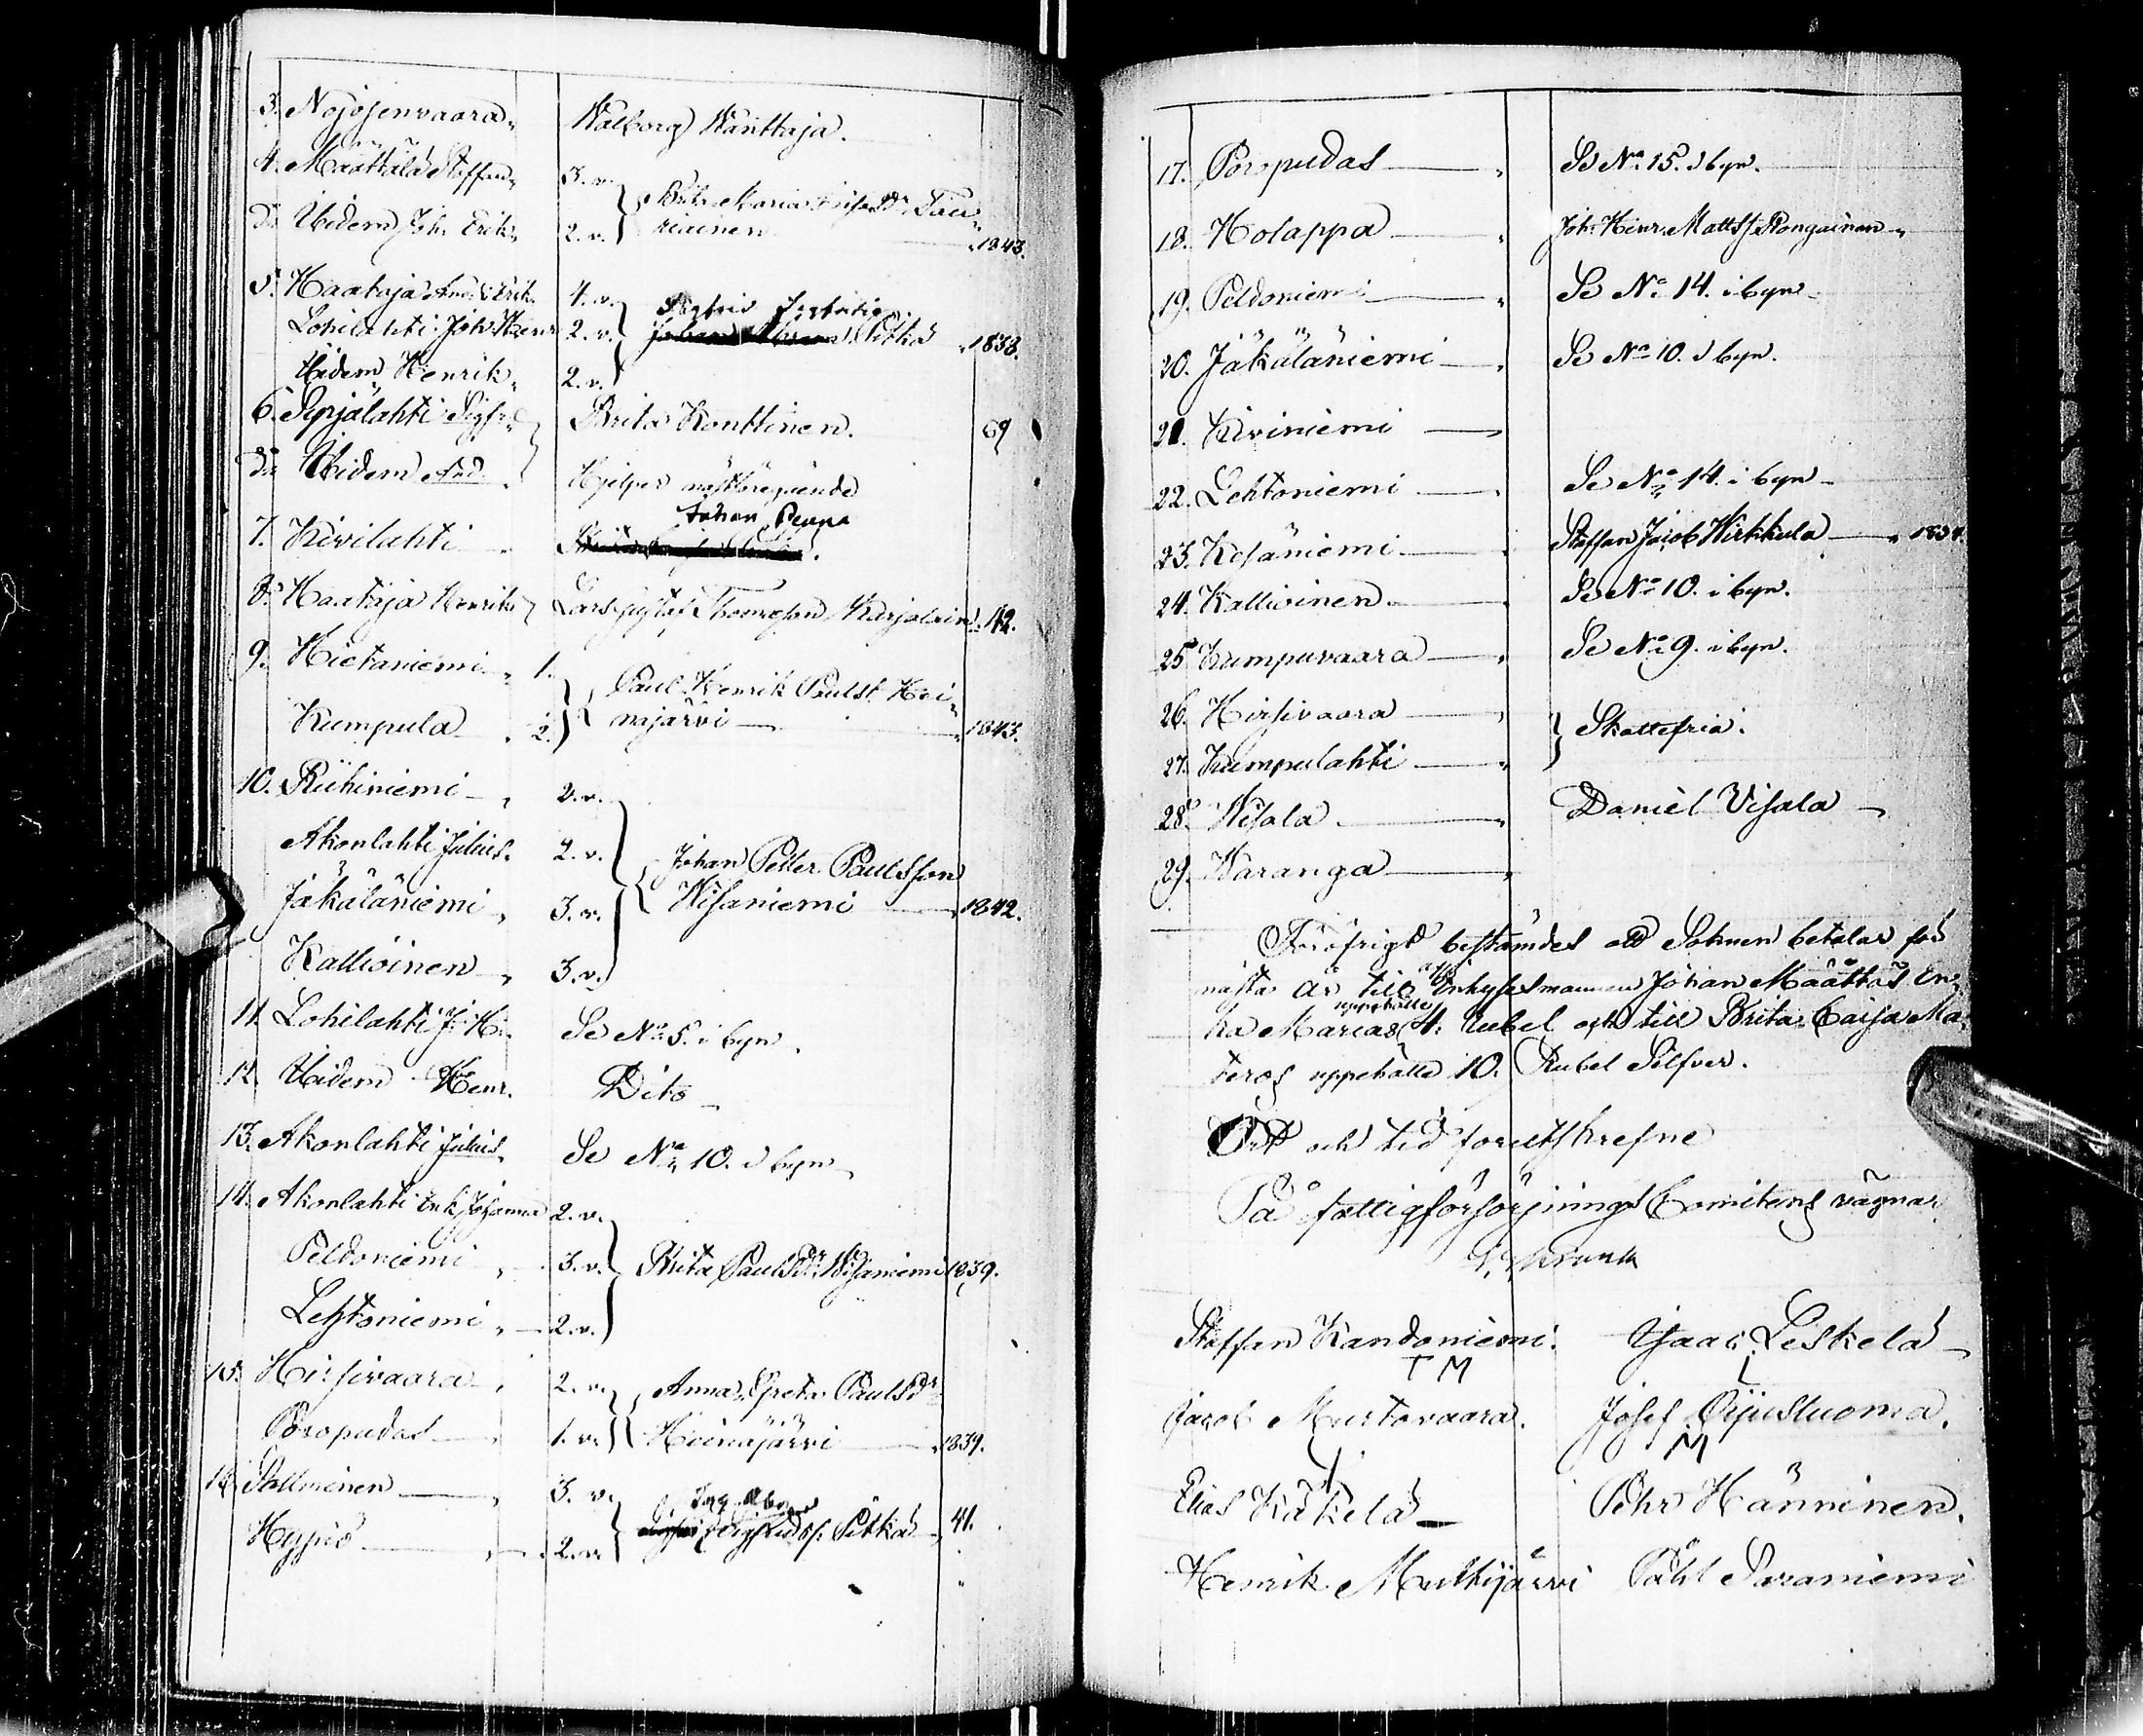 3. Nojosenvaara " Walborg Wänttaja.
4. Määttälä Staffan " 3. v.
Brita Maria Tau-
do Widem Joh. Erik " 2. v. riainen " 1843.
5. Haataja And. Erik. 4. v.
Sigfrid
Lohilahti Joh. Henr 2. v. Pitkä " 1838.
Widem Henrik " 2. v.
6. Sepjälahti Sigfr. " Brita Konttinen. 69
do Widem And. " Hjelper nästföregående
Johan Peura
7. Kivilahti "
8. Haataja Henrik " Lars Gustaf Thomasson Karjalain " 42.
9. Hietaniemi " 1.
Paul Henrik Paulss. Hoi-
Kumpula " 2. najärvi " 1843.
10. Riihiniemi " 2. v.
Akonlahti Julius " 2. v.
Johan Petter Paulsson
Jäkäläniemi " 3. v. Wisaniemi " 1842.
Kallioinen " 3. v.
11. Lohilahti J. H. Se No 5. i byn.
12. Widem Henr. Dito
13. Akonlahti Julius " Se No 10. i byn
14. Akonlahti Enk. Johanna 2. v.
Peldoniemi " 3. v. Brita Paulsdr Wisaniemi 1839.
Lehtoniemi " 2. v.
15. Hirsivaara " 2. v. Anna Greta Paulsdr
Poropudas " 1. v. Hoinajärvi " 1839.
16. Pallminen " 3. v.
Hyppiö " 2. v. Sigfridss. Pitkä " 41.
17. Poropudas " Se No 15. i byn.
18. Holappa " Joh. Henr. Mattss. Rongainen "
19. Peldoniemi " Se No 14. i byn
20. Jäkäläniemi " Se No 10. i byn.
21. Kiviniemi "
22. Lehtoniemi " Se No 14. i byn
23. Kesäniemi " Staffan Jacob Wirkkula " 1834.
24. Kallioinen " Se No 10. i byn.
25. Kumpuvaara " Se No 9. i byn.
26. Hirsivaara "
Skattefria.
27. Kumpulahti "
28. Wisala " Daniel Visala
29. Karanga "
Föröfrigt bestämdes att Soknen betalar för
nästa år till Inhysesmannen Johan Määttäs En-
uppehälle
ka Marias 4. rubel och till Brita Caisa Ma-
teros uppehälle 10. Rubel Silfver.
Ort och tid förutskrefne
På fattigförsörjnings Comitens vägnar
Staffan Kandoniemi. Isaac Leskelä
T M
Jacob Murtovaara. Josef Öijustuoma.
M
Elias Käkelä Pehr Hänninen.
Henrik Mustijärvi Påhl Saraniemi